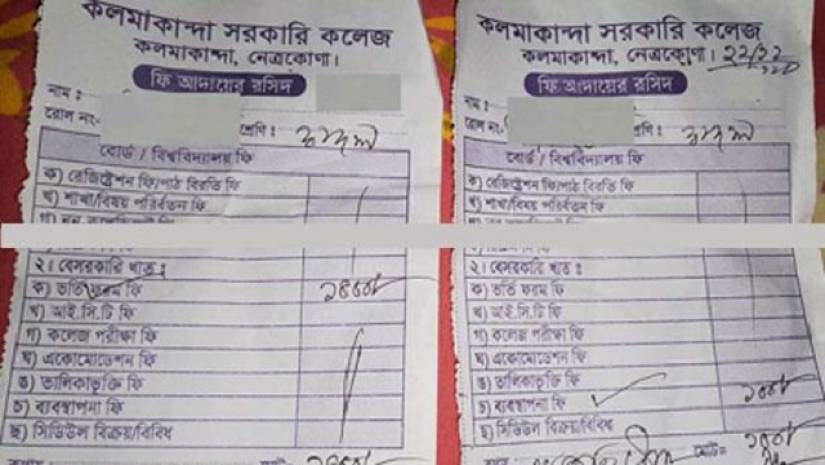 কলমাকান্দা সরকারি কলেজ
কলমাকান্দা, নেত্রকোণা।
ফি আদায়ের রসিদ
নাম :
রোল নং-
শ্রেণি :
বোর্ড / বিশ্ববিদ্যালয় ফি
ক) রেজিষ্ট্রেশন ফি/পাঠ বিরতি ফি
খ) শাখা/বিষয় পরিবর্তন ফি
২। বেসরকারি খাত :
ক) ভর্তি ফরম ফি
খ) আই.সি.টি ফি
গ) কলেজ পরীক্ষা ফি
ঘ) একোমোডেশন ফি
ঙ) তালিকাভুক্তি ফি
চ) ব্যবস্থাপনা ফি
ছ) সিডিউল বিক্রয়/বিবিধ
কলমাকান্দা সরকারি কলেজ
কলমাকান্দা, নেত্রকোণা।
ফি আদায়ের রসিদ
নাম :
রোল নং-
শ্রেণি :
বোর্ড / বিশ্ববিদ্যালয় ফি
ক) রেজিষ্ট্রেশন ফি/পাঠ বিরতি ফি
খ) শাখা/বিষয় পরিবর্তন ফি
২। বেসরকারি খাত :
ক) ভর্তি ফরম ফি
খ) আই.সি.টি ফি
গ) কলেজ পরীক্ষা ফি
ঘ) একোমোডেশন ফি
ঙ) তালিকাভুক্তি ফি
চ) ব্যবস্থাপনা ফি
ছ) সিডিউল বিক্রয়/বিবিধ